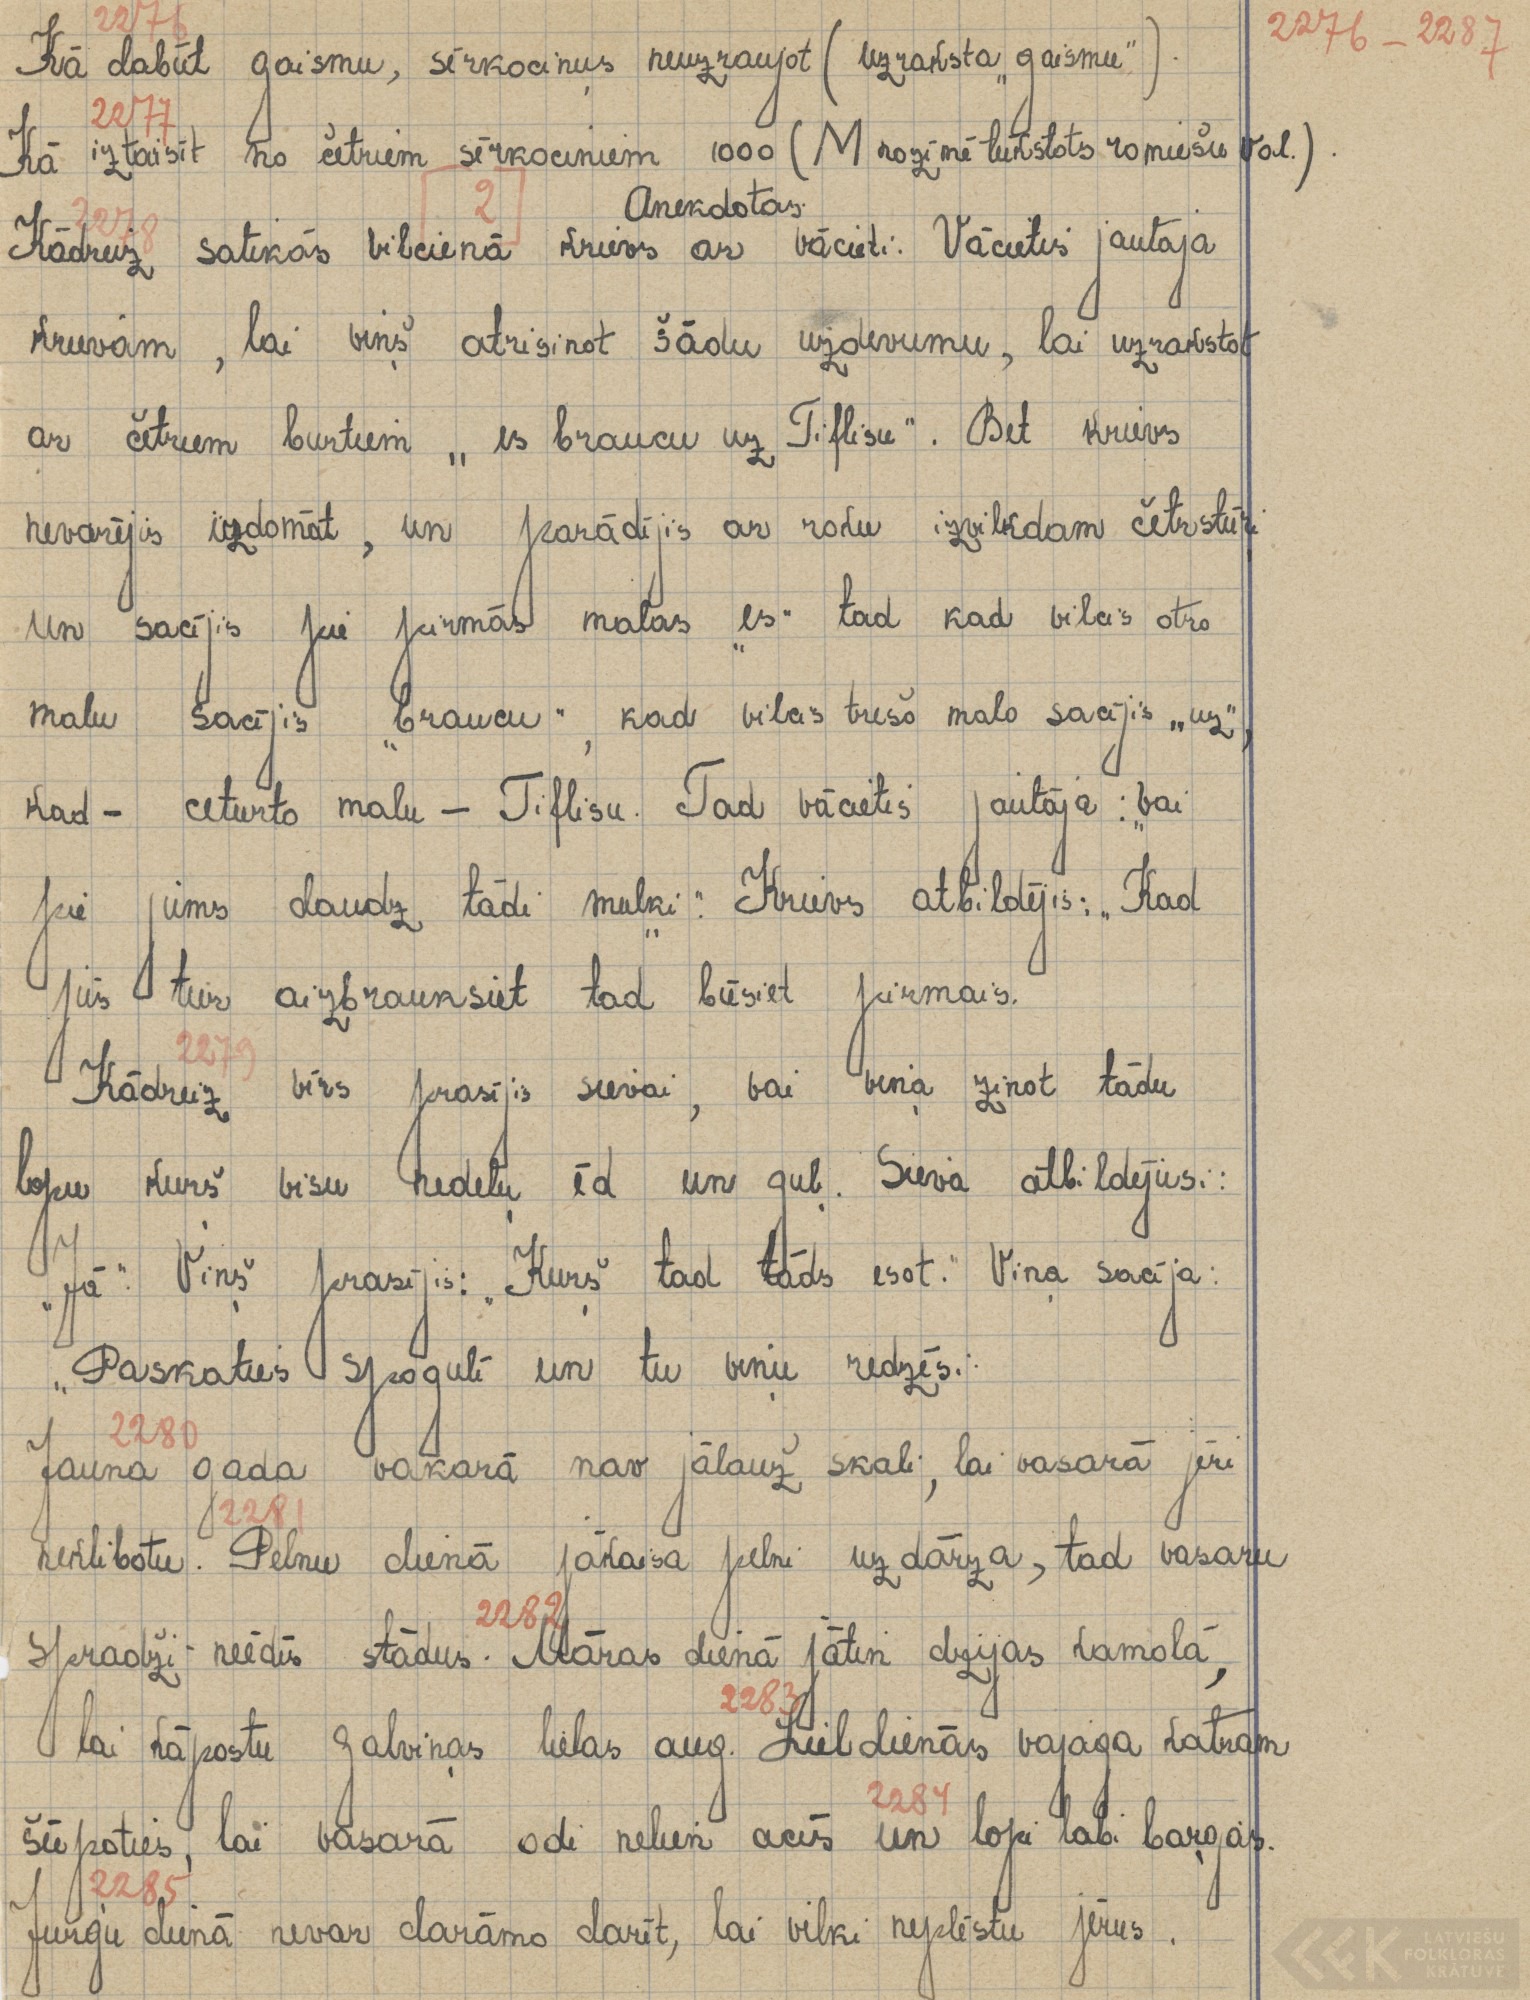 2276
2276 – 2287
Kā dabūt gaismu, sērkociņus neuzraujot (uzraksta „gaismu").
2277
Kā iztaisīt no četriem sērkociņiem 1000 (M nozīmē tūkstots romiešu val.).
2
Anekdotas.
2278
Kādreiz satikās vilcienā krievs ar vācieti. Vācietis jautāja
krievam, lai viņš atrisinot šādu uzdevumu, lai uzrakstot
ar četriem burtiem „es braucu uz Tiflisu". Bet krievs
nevarējis izdomāt, un parādījis ar roku izvilkdam četrstūri
un sacījis pie pirmās malas „es" tad kad vilcis otro
malu sacījis „braucu", kad vilcis trešo malo sacījis „uz",
kad – ceturto malu – Tiflisu. Tad vācietis jautāja: „vai
pie jums daudz tādi muļķi". Krievs atbildējis: „Kad
jūs tur aizbrauksiet tad būsiet pirmais.
2279
Kādreiz vīrs prasījis sievai, vai viņa zinot tādu
lopu kuŗš visu nedēļu ēd un guļ. Sieva atbildējusi:
„Jā". Viņš prasījis: „Kuŗš tad tāds esot." Viņa sacīja:
„Paskaties spogulī un tu viņu redzēs."
2280
Jauna gada vakarā nav jālauž skali, lai vasarā jēri
2281
neklibotu. Pelnu dienā jākaisa pelni uz dārza, tad vasaru
2282
spradži neēdīs stādus. Māras dienā jātin dzijas kamolā,
2283
lai kāpostu galviņas lielas aug. Lieldienās vajaga katram
2284
šūpoties, lai vasarā odi nelien acīs un lopi labi baŗojas.
2285
Jurģu dienā nevar darāmo darīt, lai vilki neplēstu jērus.
LATVIEŠU
FOLKLORAS
KRĀTUVE